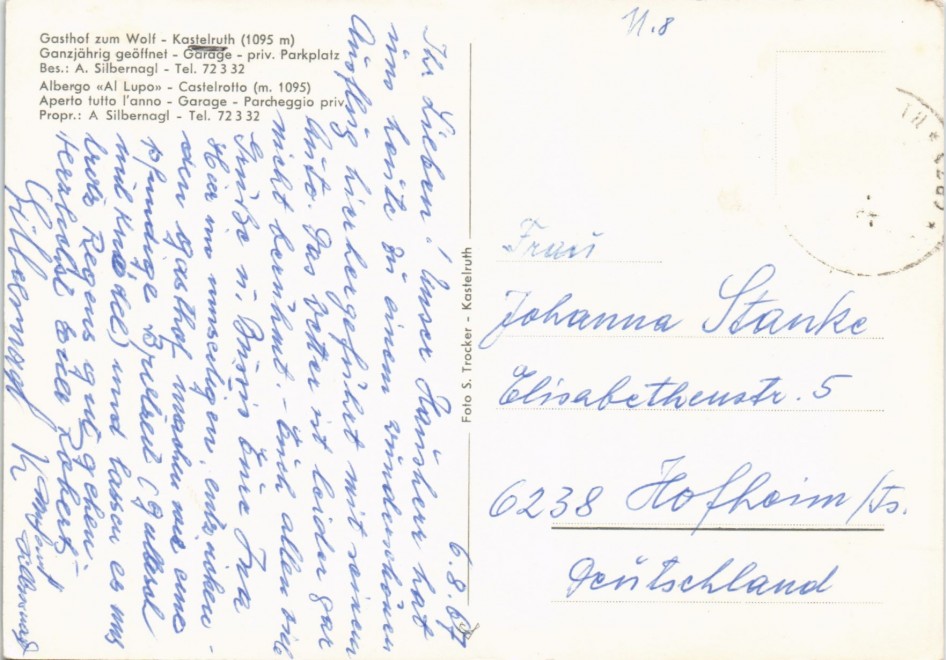 Gasthof zum Wolf - Kastelruth (1095 m)
Ganzjährig geöffnet - Garage - priv. Parkplatz
Bes.: A. Silbernagl - Tel. 72 3 32
Albergo «Al Lupo» - Castelrotto (m. 1095)
Aperto tutto l'anno - Garage - Parcheggio priv.
Propr.: A Silbernagl - Tel. 72 3 32
6.8.67
Ihr Lieben! Unser Hausherr hat
uns heute zu einem wunderschönen
Ausflug hierhergeführt mit seinem
Auto. Das Wetter ist leider gar
nicht berühmt. - Euch allen viele
Grüße u. Bussi Eure Ira
Hier im urwüchsigen
den Gasthof machen wir eine
pfundige Brotzeit (Gulasch
mit Knödel) und lassen es uns
trotz Regens gut gehen.
Herzlichst Eure Roberts
Silbernagl
Foto S. Trocker - Kastelruth
11.8
Frau
Johanna Stanke
Elisabethenstr. 5
6238 Hofheim/Ts.
Deutschland